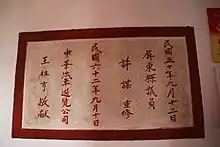 民國五十年九月十二日
屏東縣議員
許謀重修
民國六十二年九月十日
中華汽車遊覽公司
王柱亨敬獻